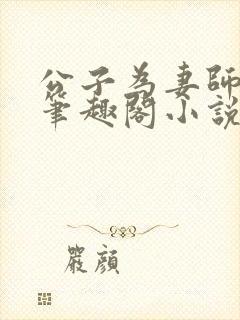 公子為妻師
筆趣閣小說
嚴顏